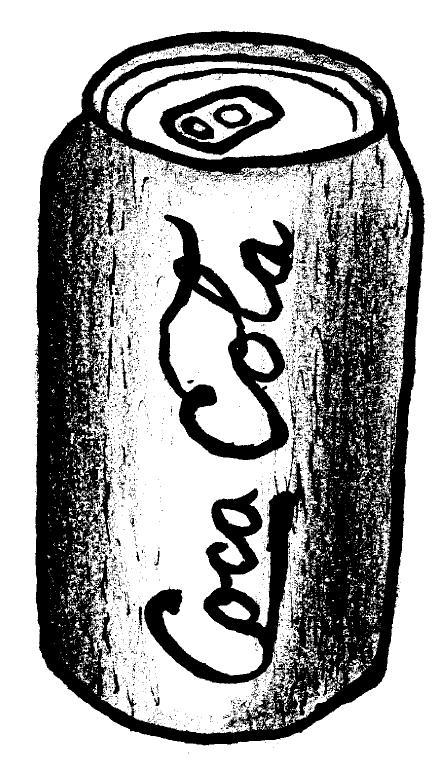 Coca Cola